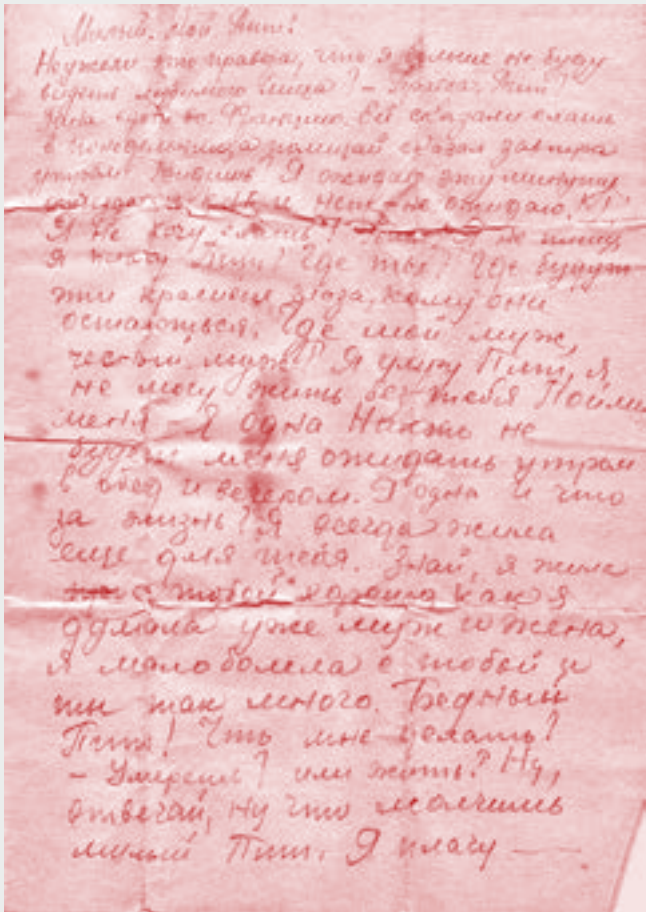 Милый. Мой Пит!
Неужели это правда, что я больше не буду
видеть любимого лица? – Правда, Пит!
во Францию. Всё сказали
в понедельник, а полицай сказал завтра
утром. Я ожидаю эту минуту
и нет – не ожидаю.
Я не хочу Я не плачу
я Пит! Где ты? Где будут
эти красивые глаза, кому они
остаються. Где мой муж,
честный муж? Я умру Пит, я
не могу жить без тебя Пойми
меня – Я одна Никто не
будет меня ожидать утром
в обед и вечером. Я одна и что
за жизнь? Я всегда жила
еще для тебя. Знай, я жила
с тобой хорошо как я
думала уже муж и жена,
я мало болела с тобой и
ты так много. Бедный
Пит! Что мне делать?
– Умереть? или жить? Ну,
отвечай, ну что молчишь
милый Пит. Я плачу —